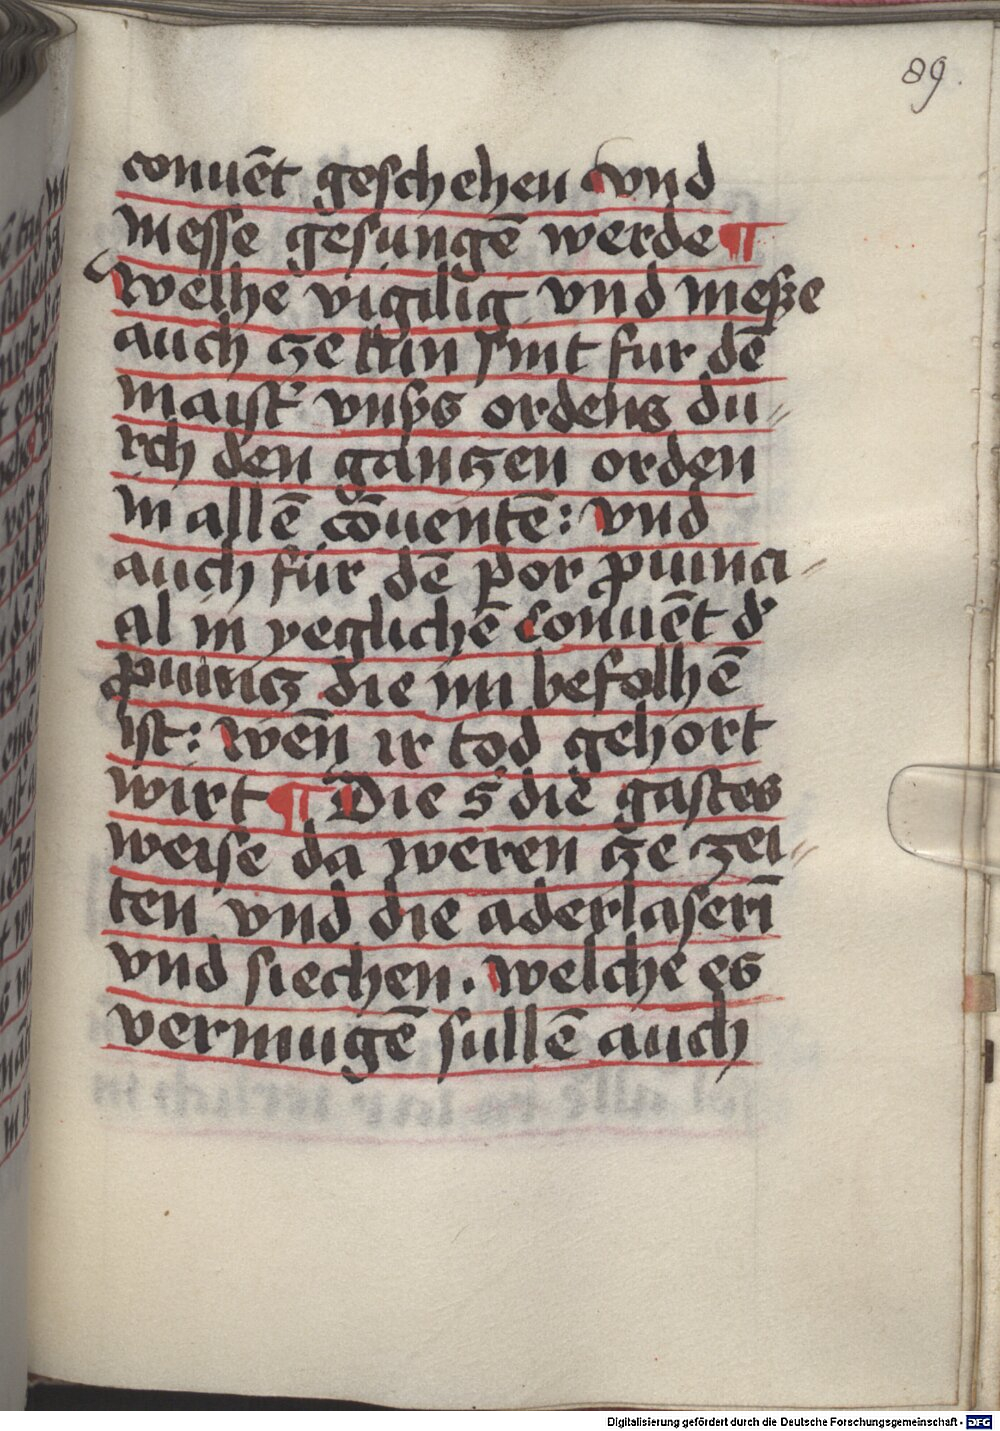 89.
conuēt geschehen vnd
messe gesungē werde ¶
welhe vigilig vnd meſze
auch ze tun sint fur dē
maist᷑ vnsṡ ordens du〃
rch den ganczen orden
in allē cōuentē: vnd
auch für dē por ꝓuinci〃
al in yeglichē conuēt d᷑
ꝓuincz die im befolhē
ist: wen̄ ir tod gehort
wirt ¶ Die die gastes
weise da weren ze zei〃
ten vnd die aderlaserī
vnd siechen. welche es
vermugē sullē auch
Digitalisierung gefördert durch die Deutsche Forschungsgemeinschaft - DFG